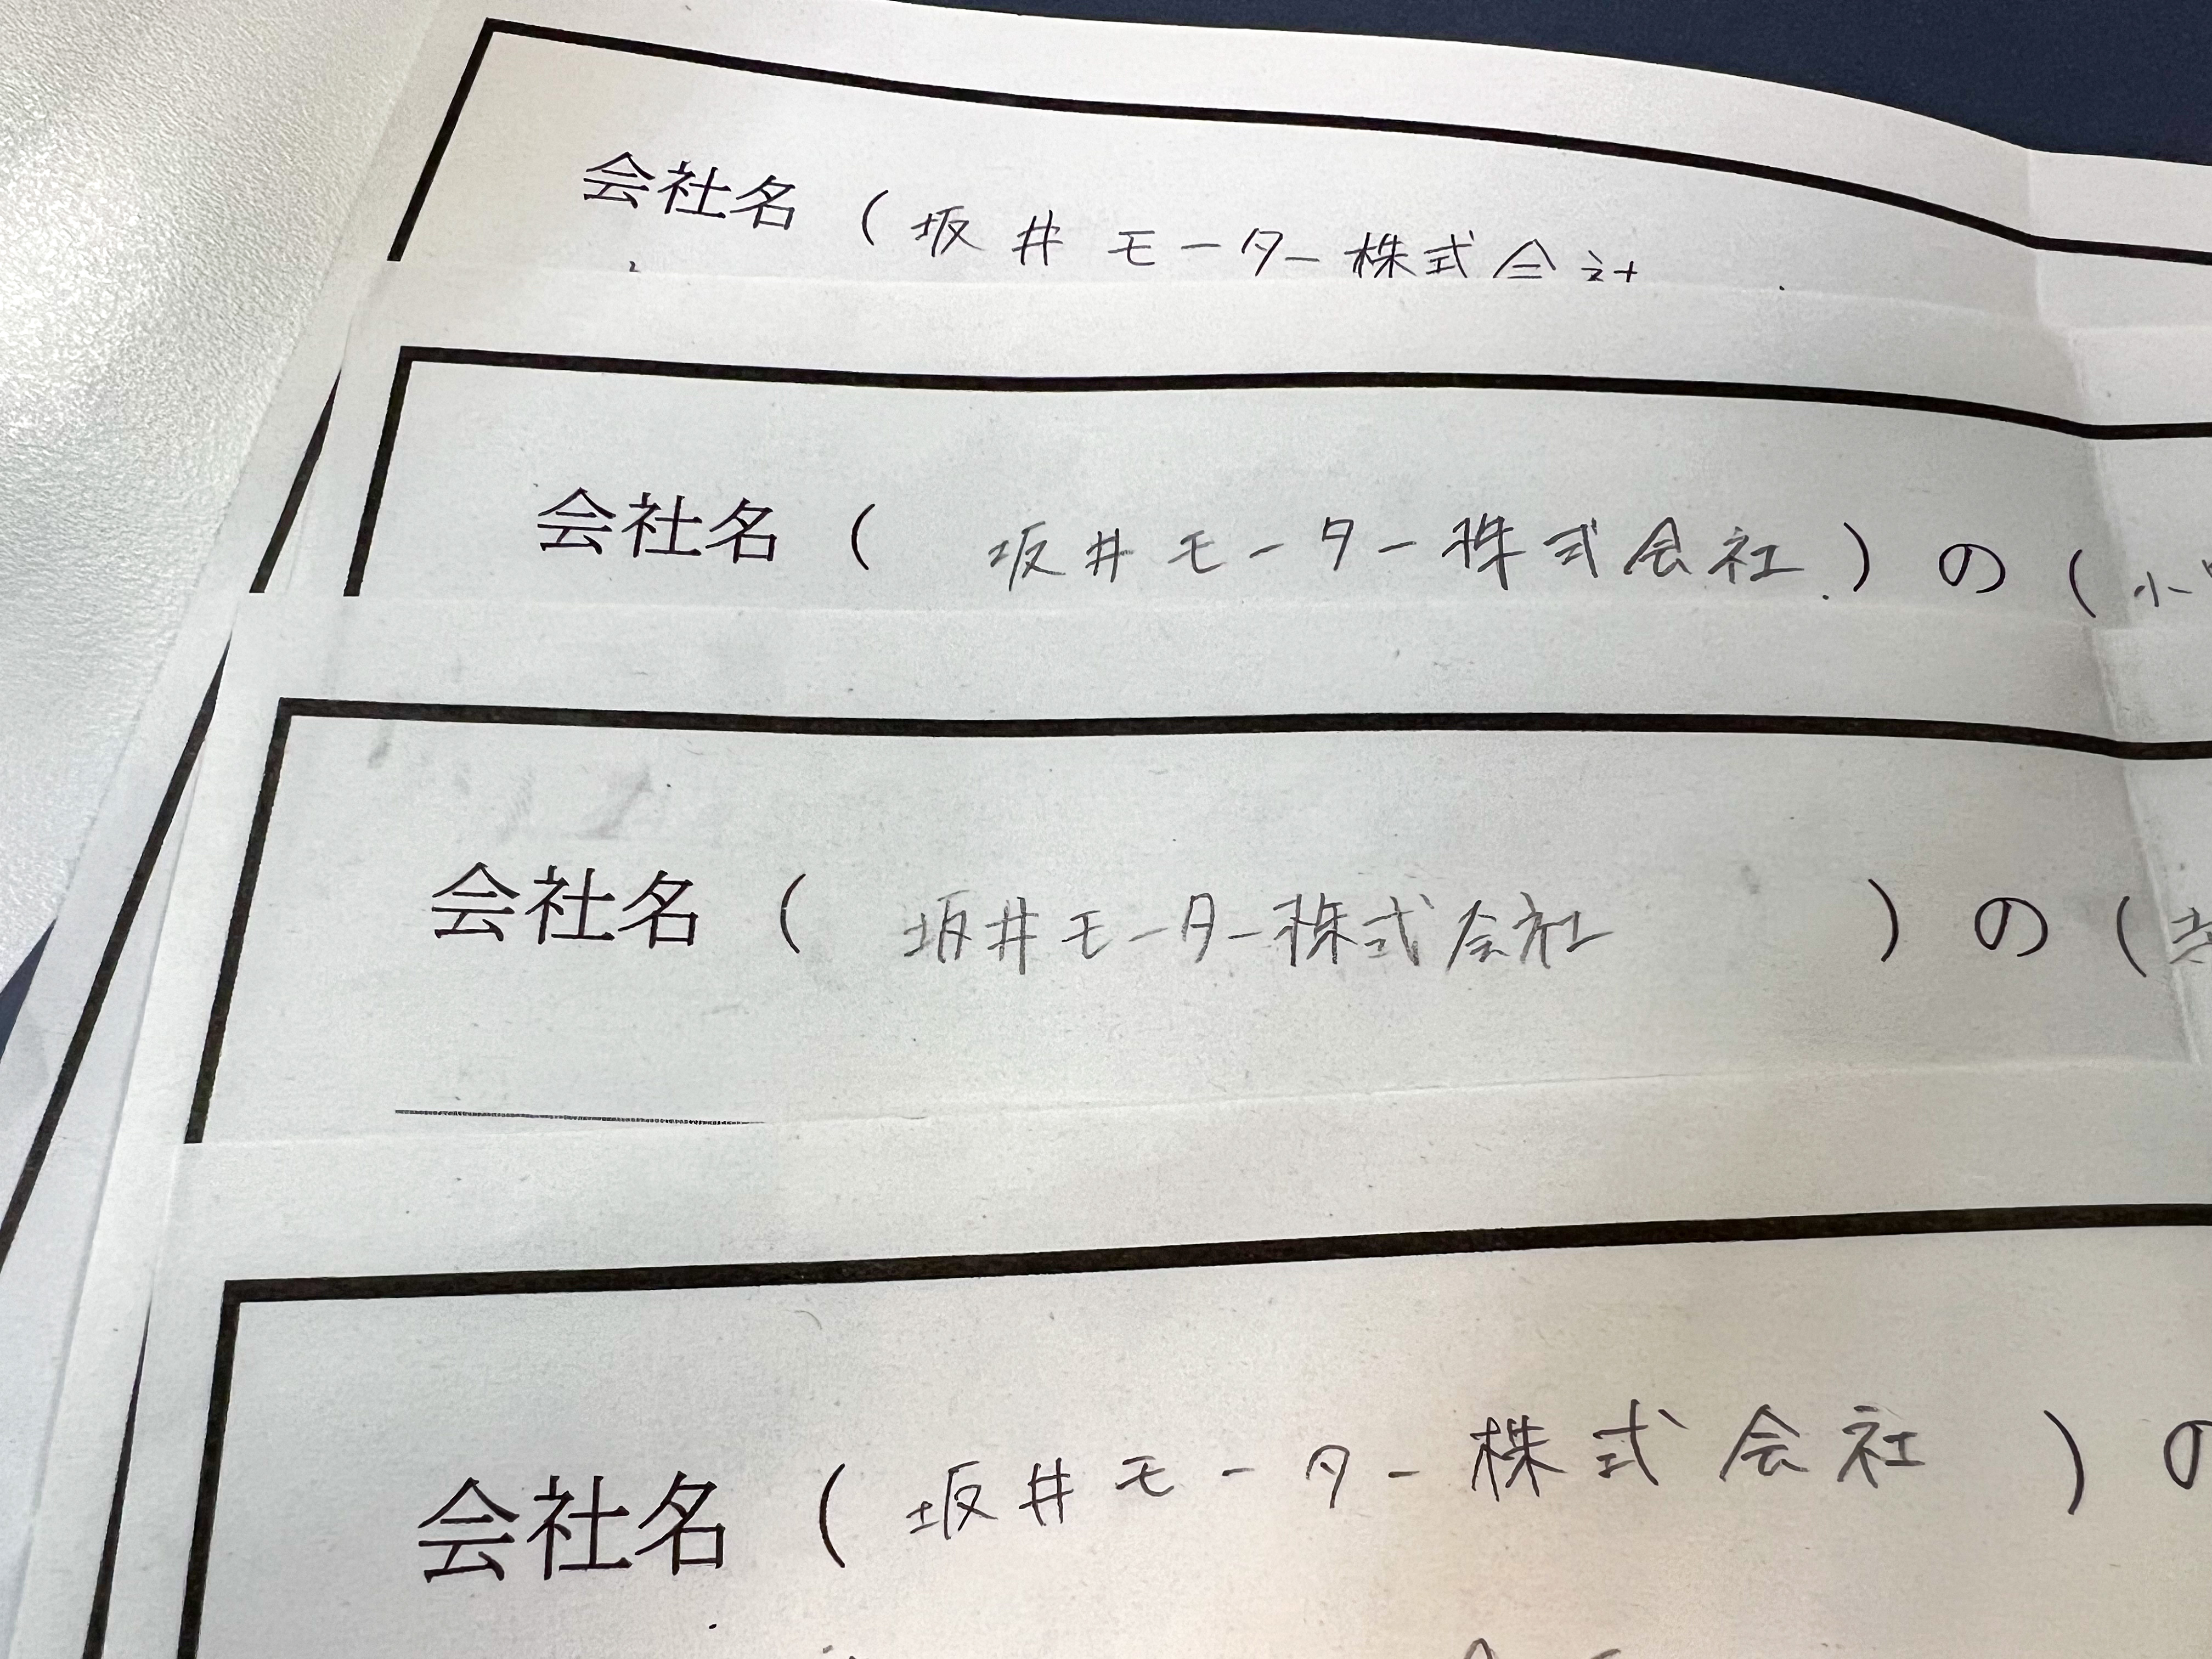 会社名（坂井モーター株式会社
会社名（坂井モーター株式会社）の（小
会社名（坂井モーター株式会社）の（
会社名（坂井モーター株式会社）の